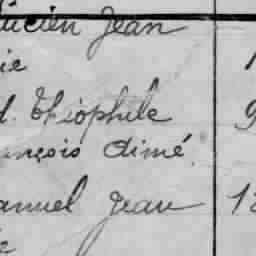 ucien Jean
ie
d. Théophile 9
ançois Aimé
anuel Jean 12
e